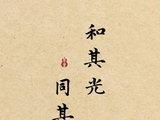 和其光
同其